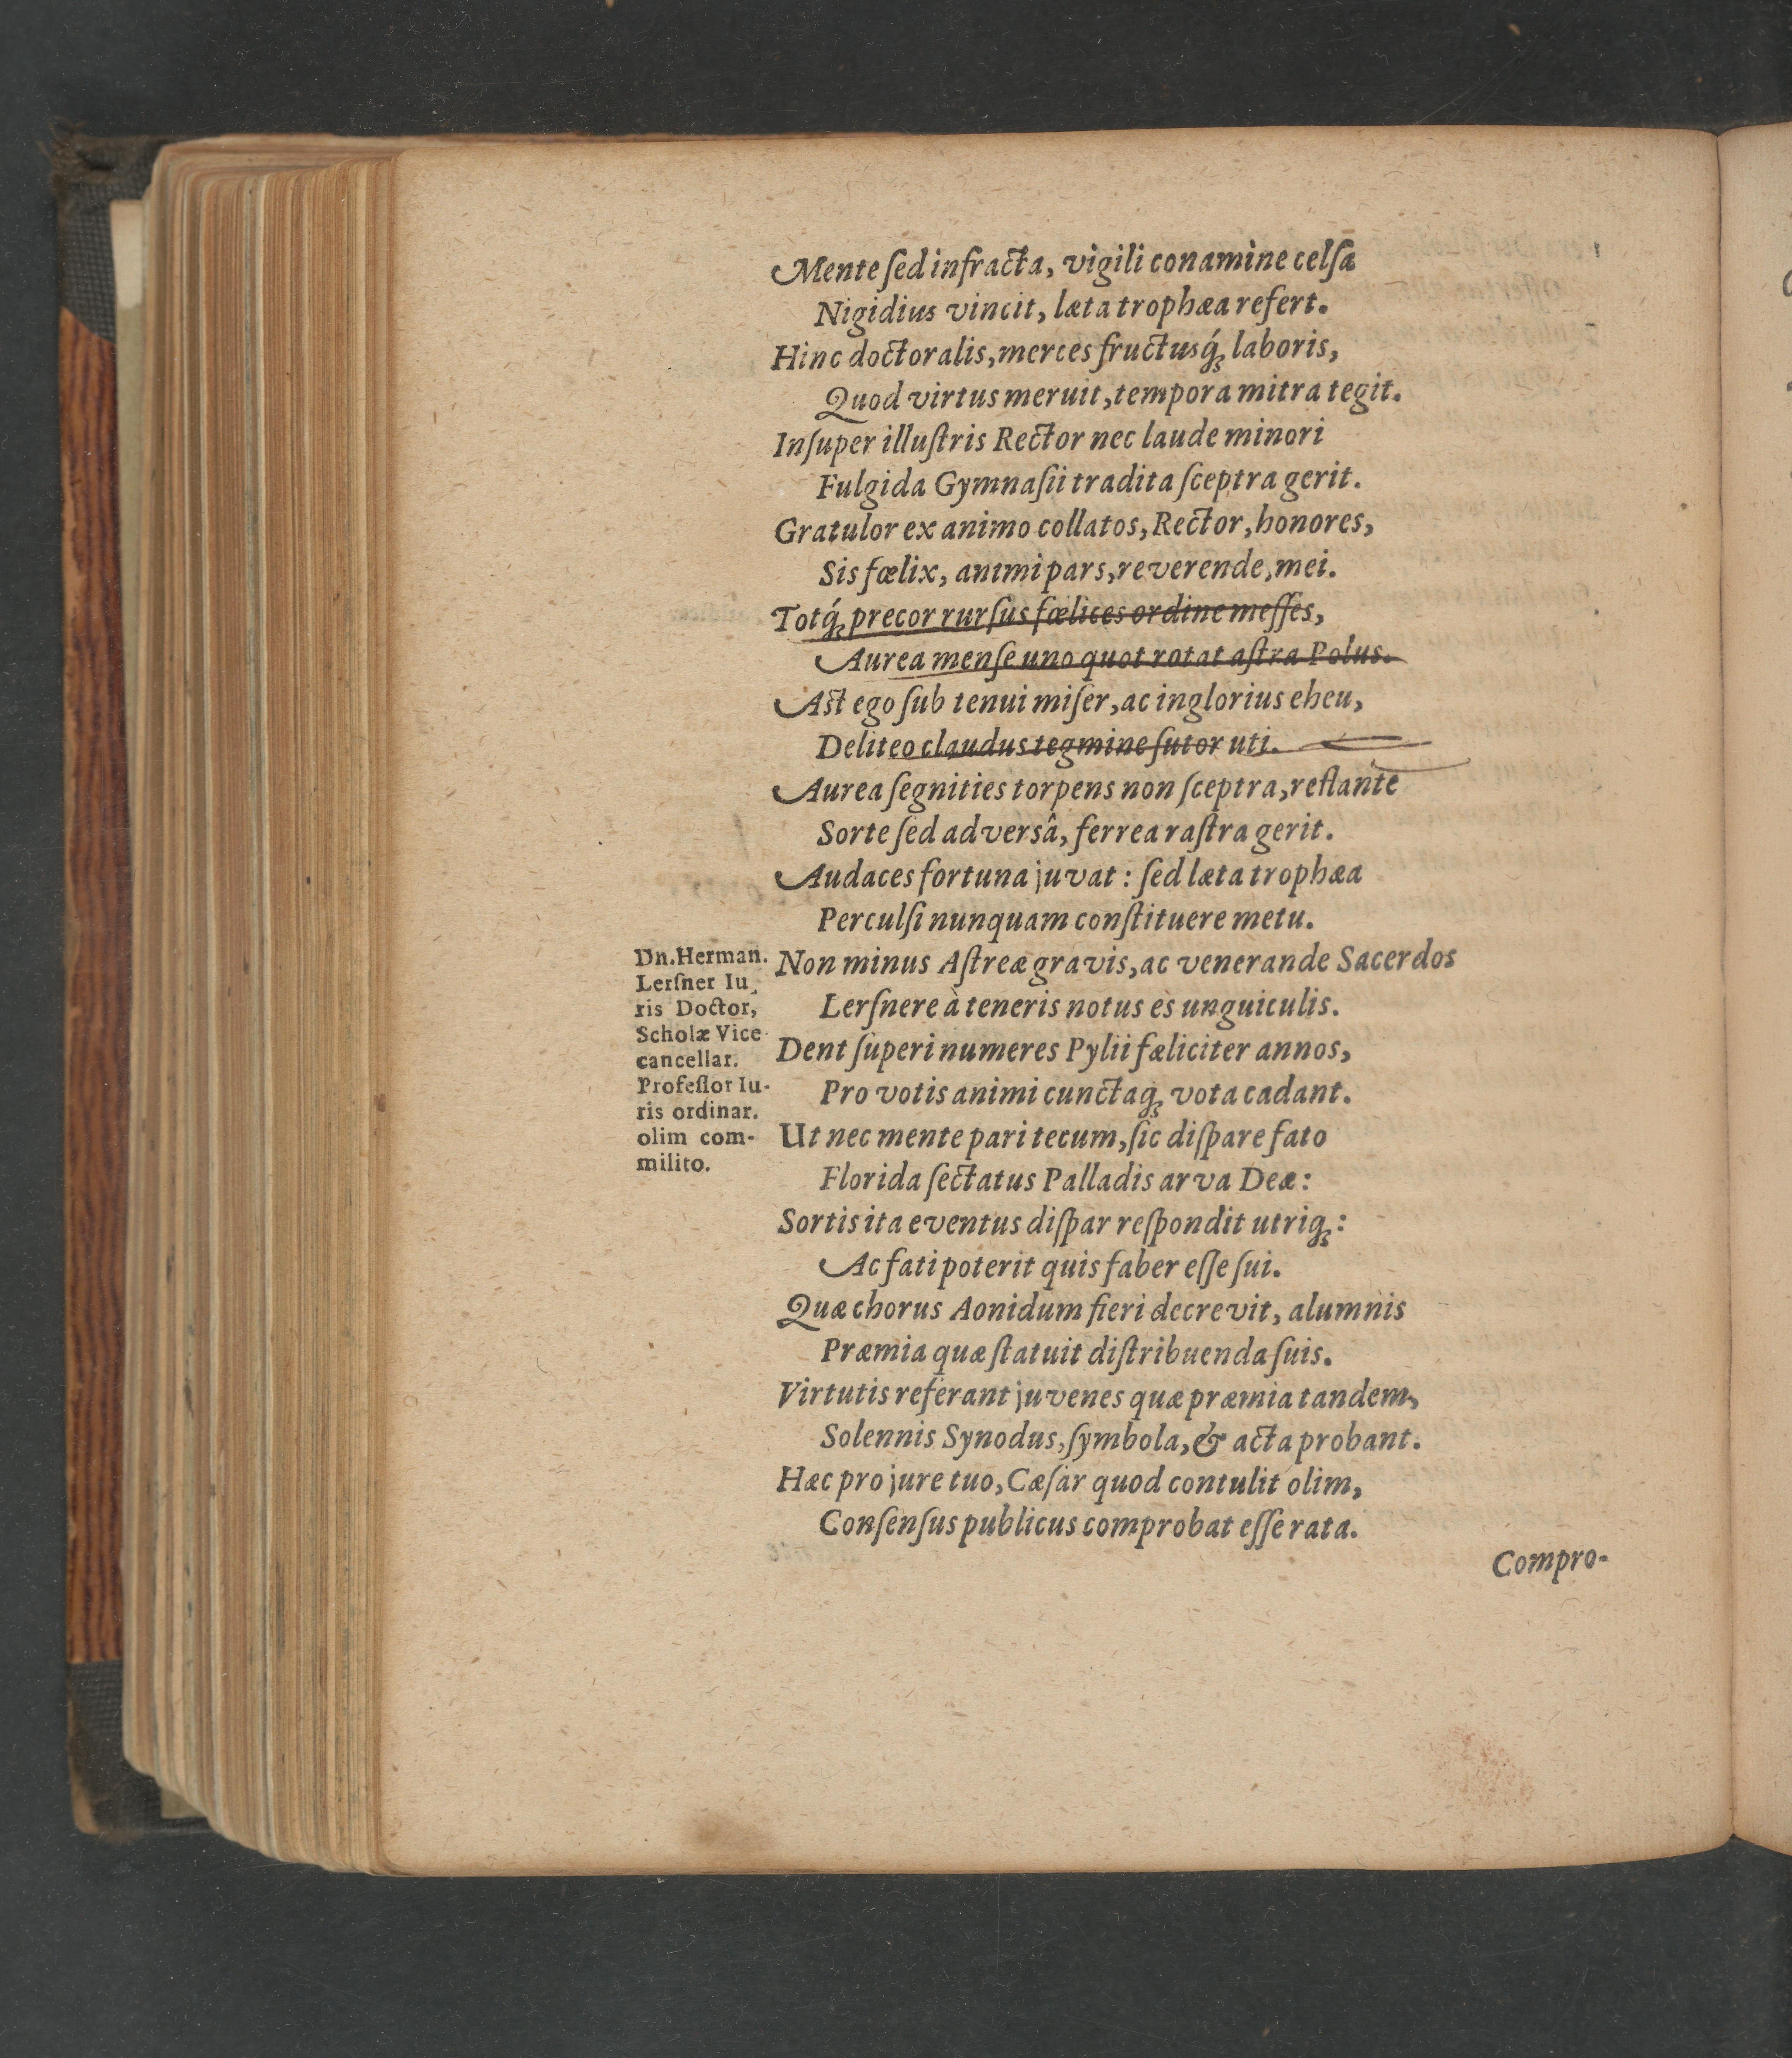 Mente ſed infracta, vigili conamine celſa
Nigidius vincit, læta trophæa refert.
Hinc doctoralis, merces fructusq́ꝫ laboris,
Quod virtus meruit, tempora mitra tegit.
Inſuper illuſtris Rector nec laude minori
Fulgida Gymnaſii tradita ſceptra gerit.
Gratulor ex animo collatos, Rector, honores,
Sis fœlix, animi pars, reverende, mei.
Totq́ꝫ precor rurſus fœlices ordine meſſes,
Aurea menſe uno quot rotat aſtra Polus.
Aſt ego ſub tenui miſer, ac inglorius eheu,
Deliteo claudus tegmine ſutor uti.
Aurea ſegnities torpens non ſceptra, reflante
Sorte ſed adversâ, ferrea raſtra gerit.
Audaces fortuna juvat : ſed læta trophæa
Perculſi nunquam conſtituere metu.
Dn. Herman.
Lerſner Iu-
ris Doctor,
Scholæ Vice
cancellar.
Profeſſor Iu-
ris ordinar.
olim com-
milito.
Non minus Aſtreæ gravis, ac venerande Sacerdos
Lerſnere à teneris notus es unguiculis.
Dent ſuperi numeres Pylii fæliciter annos,
Pro votis animi cunctaqꝫ vota cadant.
Ut nec mente pari tecum, ſic diſpare fato
Florida ſectatus Palladis arva Deæ :
Sortis ita eventus diſpar reſpondit utriqꝫ :
Ac fati poterit quis faber eſſe ſui.
Quæ chorus Aonidum fieri decrevit, alumnis
Præmia quæ ſtatuit diſtribuenda ſuis.
Virtutis referant juvenes quæ præmia tandem,
Solennis Synodus, ſymbola, & acta probant.
Hæc pro jure tuo, Cæſar quod contulit olim,
Conſenſus publicus comprobat eſſe rata.
Compro-